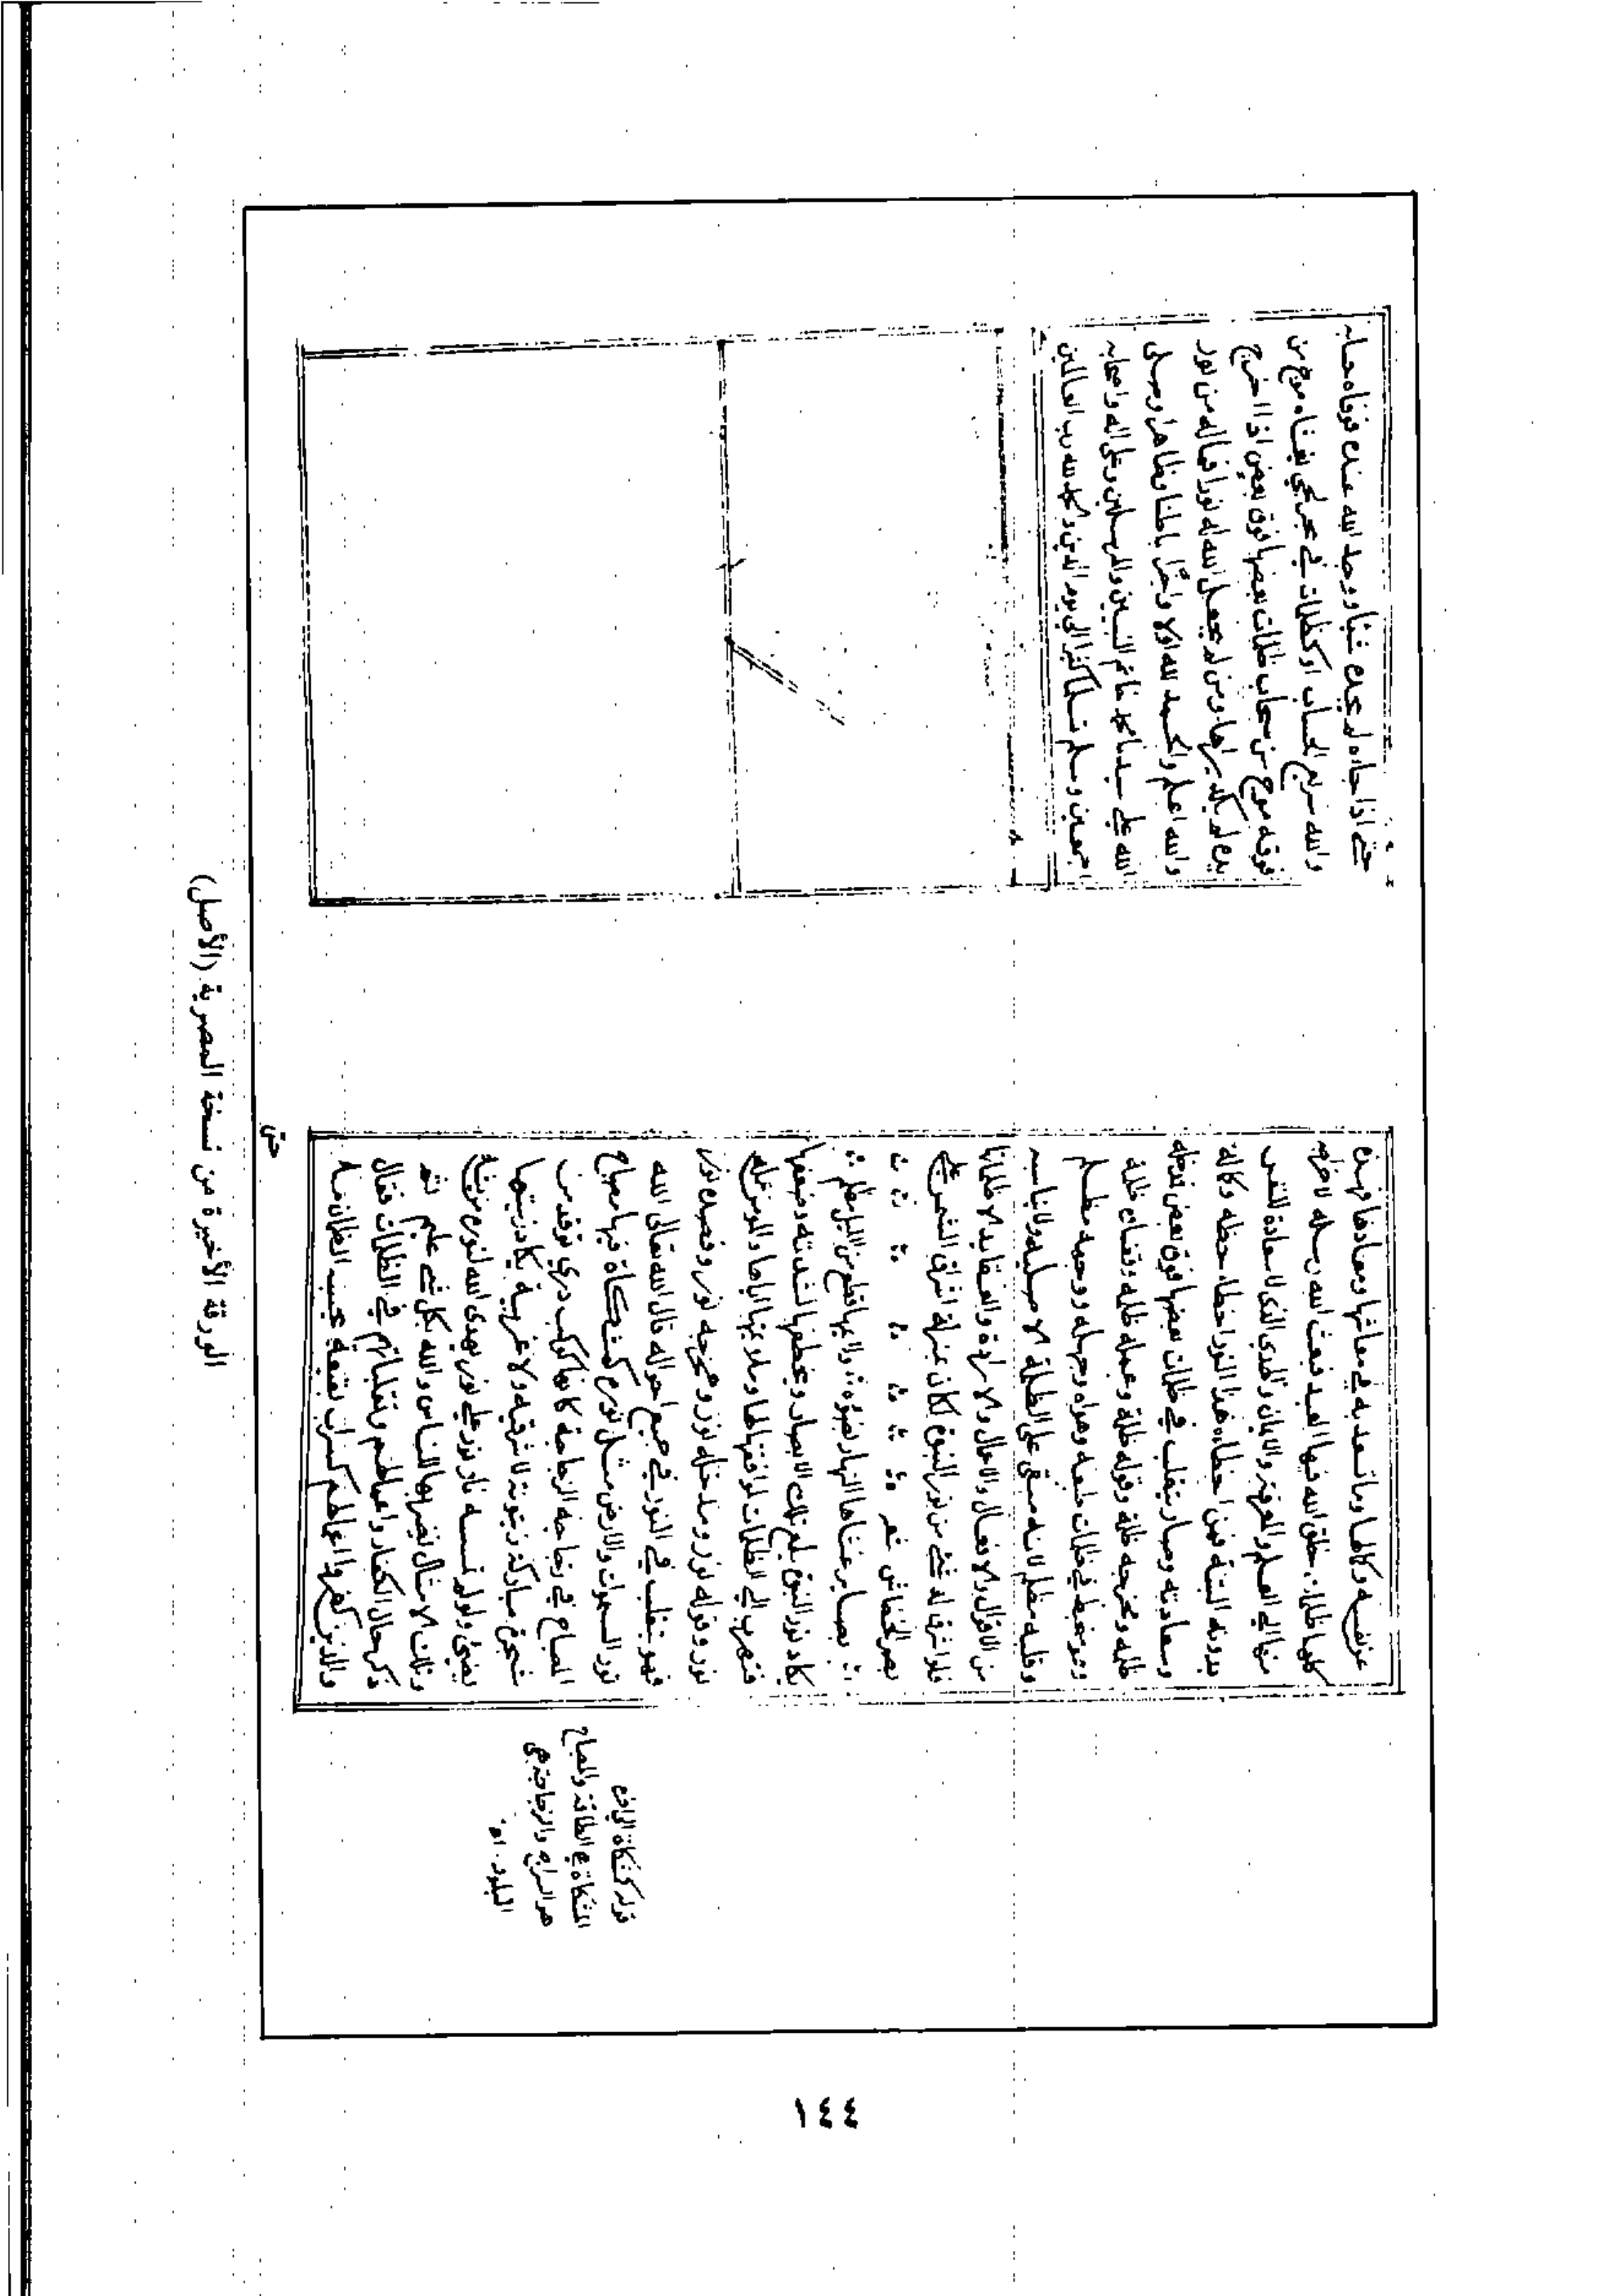 عن نفسه وكالها وما تسعد به في معاشها ومعادها فهذه
كلها ظلمات خلق الله فيها العبد فبعث الله رسله لاخراجه
منها الى العلم والمعرفة والايمان والهدى الذى لا سعادة للنفس
بدونه البتة فمن اخطاه هذا النور اخطاه حظه وكاله
وسعادته وصار يتقلب في ظلمات بعضها فوق بعض فمدخله
ظلمه ومخرجه ظلمة وقوله ظلمة وعمله ظلمه وقصده ظلمه
وهو متخبط في ظلمات طبعه وهواه وجهله ووجهه مظلم
وقلبه مظلم لانه مبقى على الظلمة الاصليه ولا يناسبه
من الاقوال والافعال والاعمال والارادة والعقايد الا ظلماتها
فلو اشرق له شئ من نور النبوة لكان بمنزلة اشراق الشمس على
بصر الخفاش شعر
بصاير غشاها النهار بضوءه ولاءمها قطع من الليل مظلم
يكاد نور النبوة يلمع تلك الابصار ويخطفها لشدته وضعفها
فتهرب الى الظلمات لموافقتها لها وملاءمتها اياها والمومن عمله
نور وقوله نور ومدخله نور ومخرجه نور وقصده نور
فهو يتقلب في النور في جميع احواله قال الله تعالى الله
نور السموات والارض مثل نوره كمشكاة فيها مصباح
المصباح في زجاجة الزجاجة كانها كوكب دري توقد من
شجرة مباركة زيتونة لا شرقية ولا غربية يكاد زيتها
يضئ ولو لم تمسسه نار نور على نور يهدى الله لنوره من يشاء
وتلك الامثال نضربها للناس والله بكل شئ عليم ثم
ذكر حال الكفار واعمالهم وتقلباتهم في الظلمات فقال
والذين كفروا اعمالهم كسراب بقيعة يحسبه الظمان ماء
حتى
قوله كمشكاة الى اخره
المشكاة هي الطاقة والمصباح
هو السراج والزجاجة هي
البلور. اه
حتى اذا جاءه لم يجده شيئا ووجد الله عنده فوفاه حسابه
والله سريع الحساب او كظلمات في بحر لجي يغشاه موج من
فوقه موج من سحاب ظلمات بعضها فوق بعض اذا اخرج
يده لم يكد يراها ومن لم يجعل الله له نورا فما له من نور
والله اعلم والحمد لله اولا واخرًا باطنا وظاهرًا وصلى
الله على سيدنا محمد خاتم النبيين والمرسلين وعلى اله واصحابه
اجمعين وسلم تسليما كثيرا الى يوم الدين والحمد لله رب العالمين
الورقة الأخيرة من نسخة المصرية (الأصل)
١٤٤